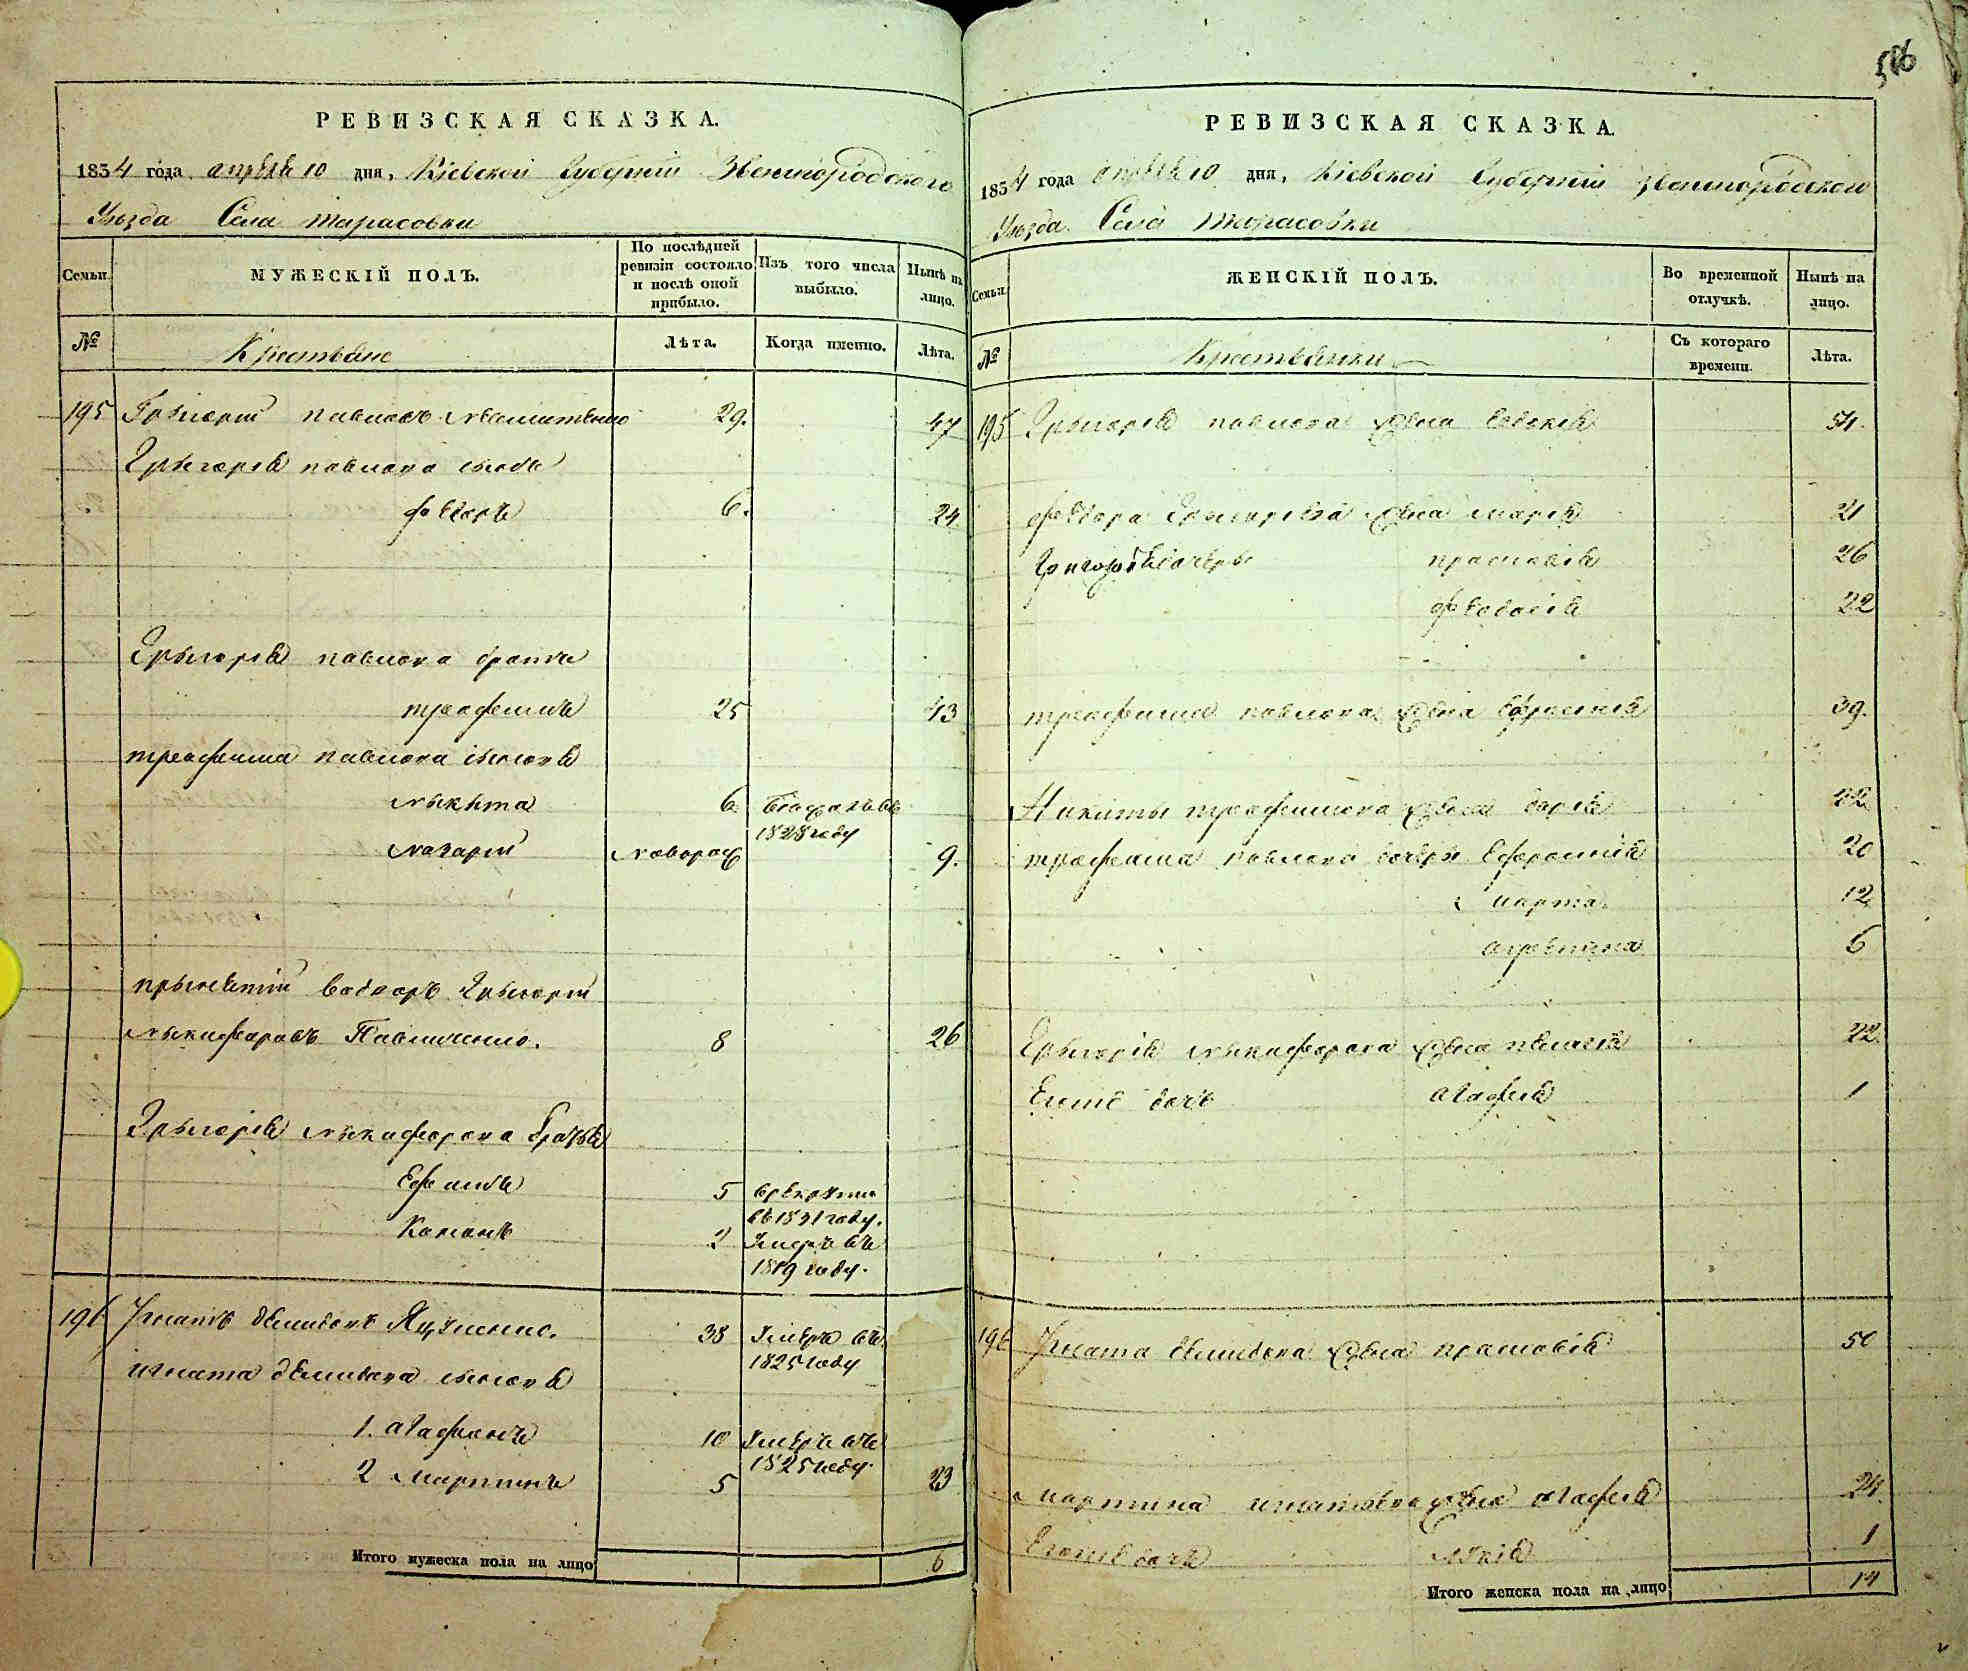 РЕВИЗСКАЯ СКАЗКА.
1834 года апрѣля 10 дня, Кіевской Губерніи Звенигородского
Уѣзда Села Тарасовки
Семьи.
МУЖЕСКІЙ ПОЛЪ.
По послѣдней ревизіи состояло и послѣ оной прибыло.
Изъ того числа выбыло.
Нынѣ на лицо.
№
Крестьяне
Лѣта.
Когда именно.
Лѣта.
195 Грыгорій павловъ 29. 47
Грыгорія павлова сынъ
федоръ 6. 24
Грыгорія павлова братъ
трофимъ 25 43
трофима павлова сыновя
мыкыта 6
1828 году
назарій новорож 9.
Грыгорій
мыкифоровъ Павличенко. 8 26
Грыгорія мыкифорова братья
Ефимъ 5 врекруты
въ 1831 году.
2 Умеръ въ
1819 году.
196 Игнатъ демидовъ Яценко. 38 Умеръ въ
1825 году
игната демидова сыновя
1. агафонъ 10 Умеръ въ
1825 году
2 мартинъ 5 23
Итого мужеска пола на лицо 6
РЕВИЗСКАЯ СКАЗКА.
1834 года апрѣля 10 дня, Кіевской Губерніи Звенигородского
Уѣзда Села Тарасовки
Семьи.
ЖЕНСКІЙ ПОЛЪ.
Во временной отлучкѣ.
Нынѣ на лицо.
№
Крестьянки
Съ котораго времени.
Лѣта.
195 Грыгорія павлова жена Евдокія 54.
федора Грыгоріева жена марія 21
Григорія дочеры прасковія 26
феодосія 22
трофима павлова жена Ефросинія 39.
Никиты трофимова жена дарія 22
трофима павлова дочери Ефросинія 20
марта 12
агрепина 6
Грыгорія мыкифорова жена пелагія 22.
Егожъ дочь агафія 1
196 Игната демидова жена прасковія 50
мартина игнатова жена агафія 24.
Егожъ дочь 1
Итого женска пола на лицо 14